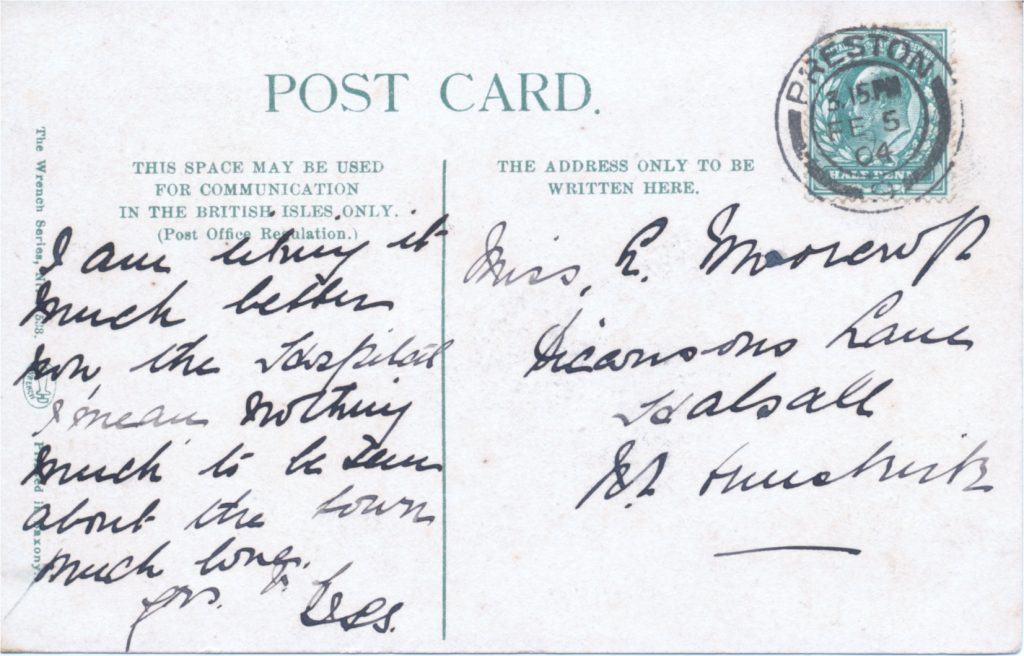 POST CARD.
THIS SPACE MAY BE USED
FOR COMMUNICATION
IN THE BRITISH ISLES ONLY.
(Post Office Regulation.)
THE ADDRESS ONLY TO BE
WRITTEN HERE.
PRESTON
3.15PM
FE 5
04
HALF PENNY
The Wrench Series,
Printed in Saxony
I am liking it
much better
now, the Hospital
I mean nothing
much to be seen
about the town
much love,
yrs.
Miss,
Moorcroft
Dicconsons Lane
Halsall
Nr Ormskirk